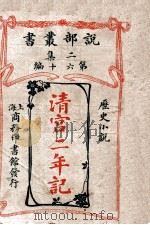 説部叢書
二集
第六十編
歷史小說
清宮二年記
上海商務印書館發行